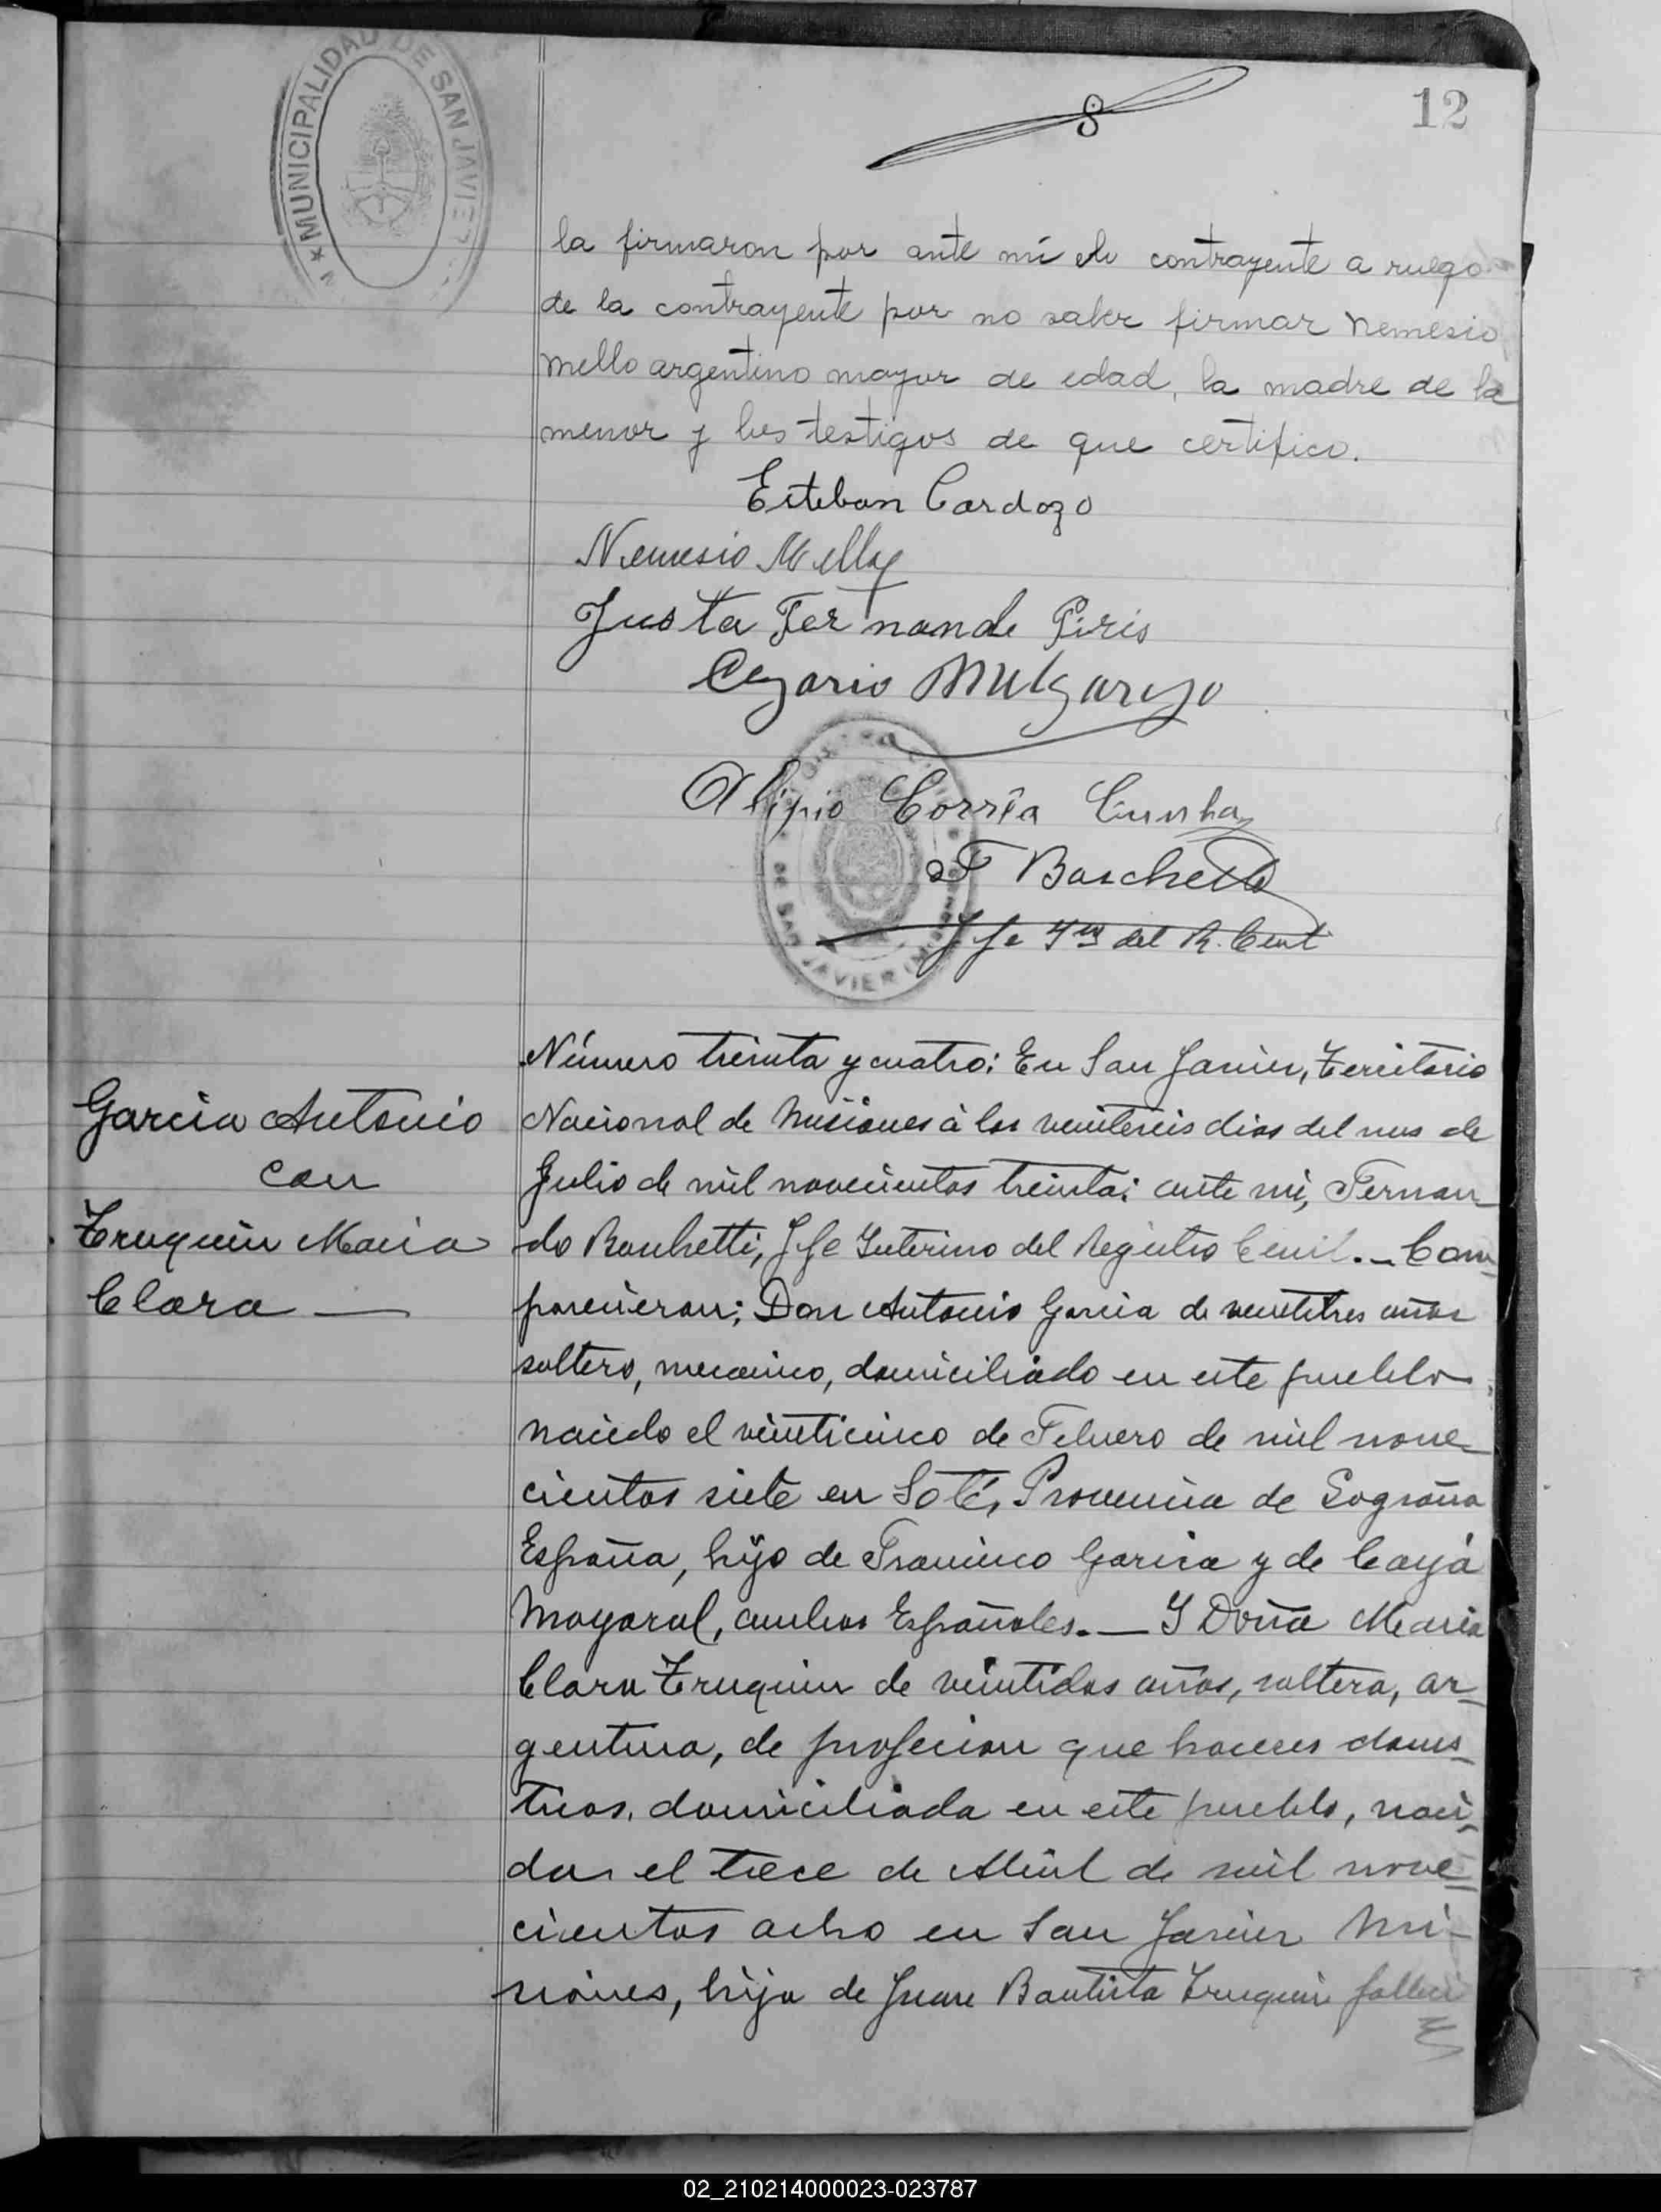 MUNICIPALIDAD DE SAN JAVIER
8
12
la firmaron por ante mi el contrayente a ruego
de la contrayente por no saber firmar Nemesio
Mello argentino mayor de edad, la madre de la
menor y los testigos de que certifico.
Esteban Cardozo
Nemesio Mello
Justa Fernande Piris
Cezario Melgarejo
Alipio Corrêa Cunha
F Boschetti
Jefe del R. Civil
DE SAN JAVIER
Número treinta y cuatro: En San Javier, Territorio
Garcia Antonio
Nacional de Misiones à los veinteseis dias del mes de
con
Julio de mil novecientos treinta: ante mi, Fernan
Truquin Maria
do Boschetti, Jefe Interino del Registro Civil._ Com
Clara —
parecieron; Don Antonio Garcia de veintitres años
soltero, mecanico, domiciliado en este pueblo
nacido el veinticinco de Febrero de mil nove
cientos siete en Soté, Provincia de Logroño
España, hijo de Francisco Garcia y de Cayá
Mayoral, ambos Españoles.— Y Doña Maria
Clara Truquin de veintidos años, soltera, ar_
gentina, de profecion que haceres domes_
ticos, domiciliada en este pueblo, naci_
da el trece de Abril de mil nove
cientos ocho en San Javier Mi-
siones, hija de Juan Bautista Truquin falleci
02_210214000023-023787